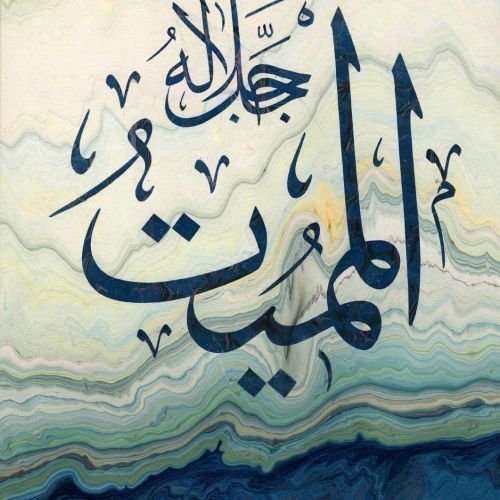 المميت
جل جلاله